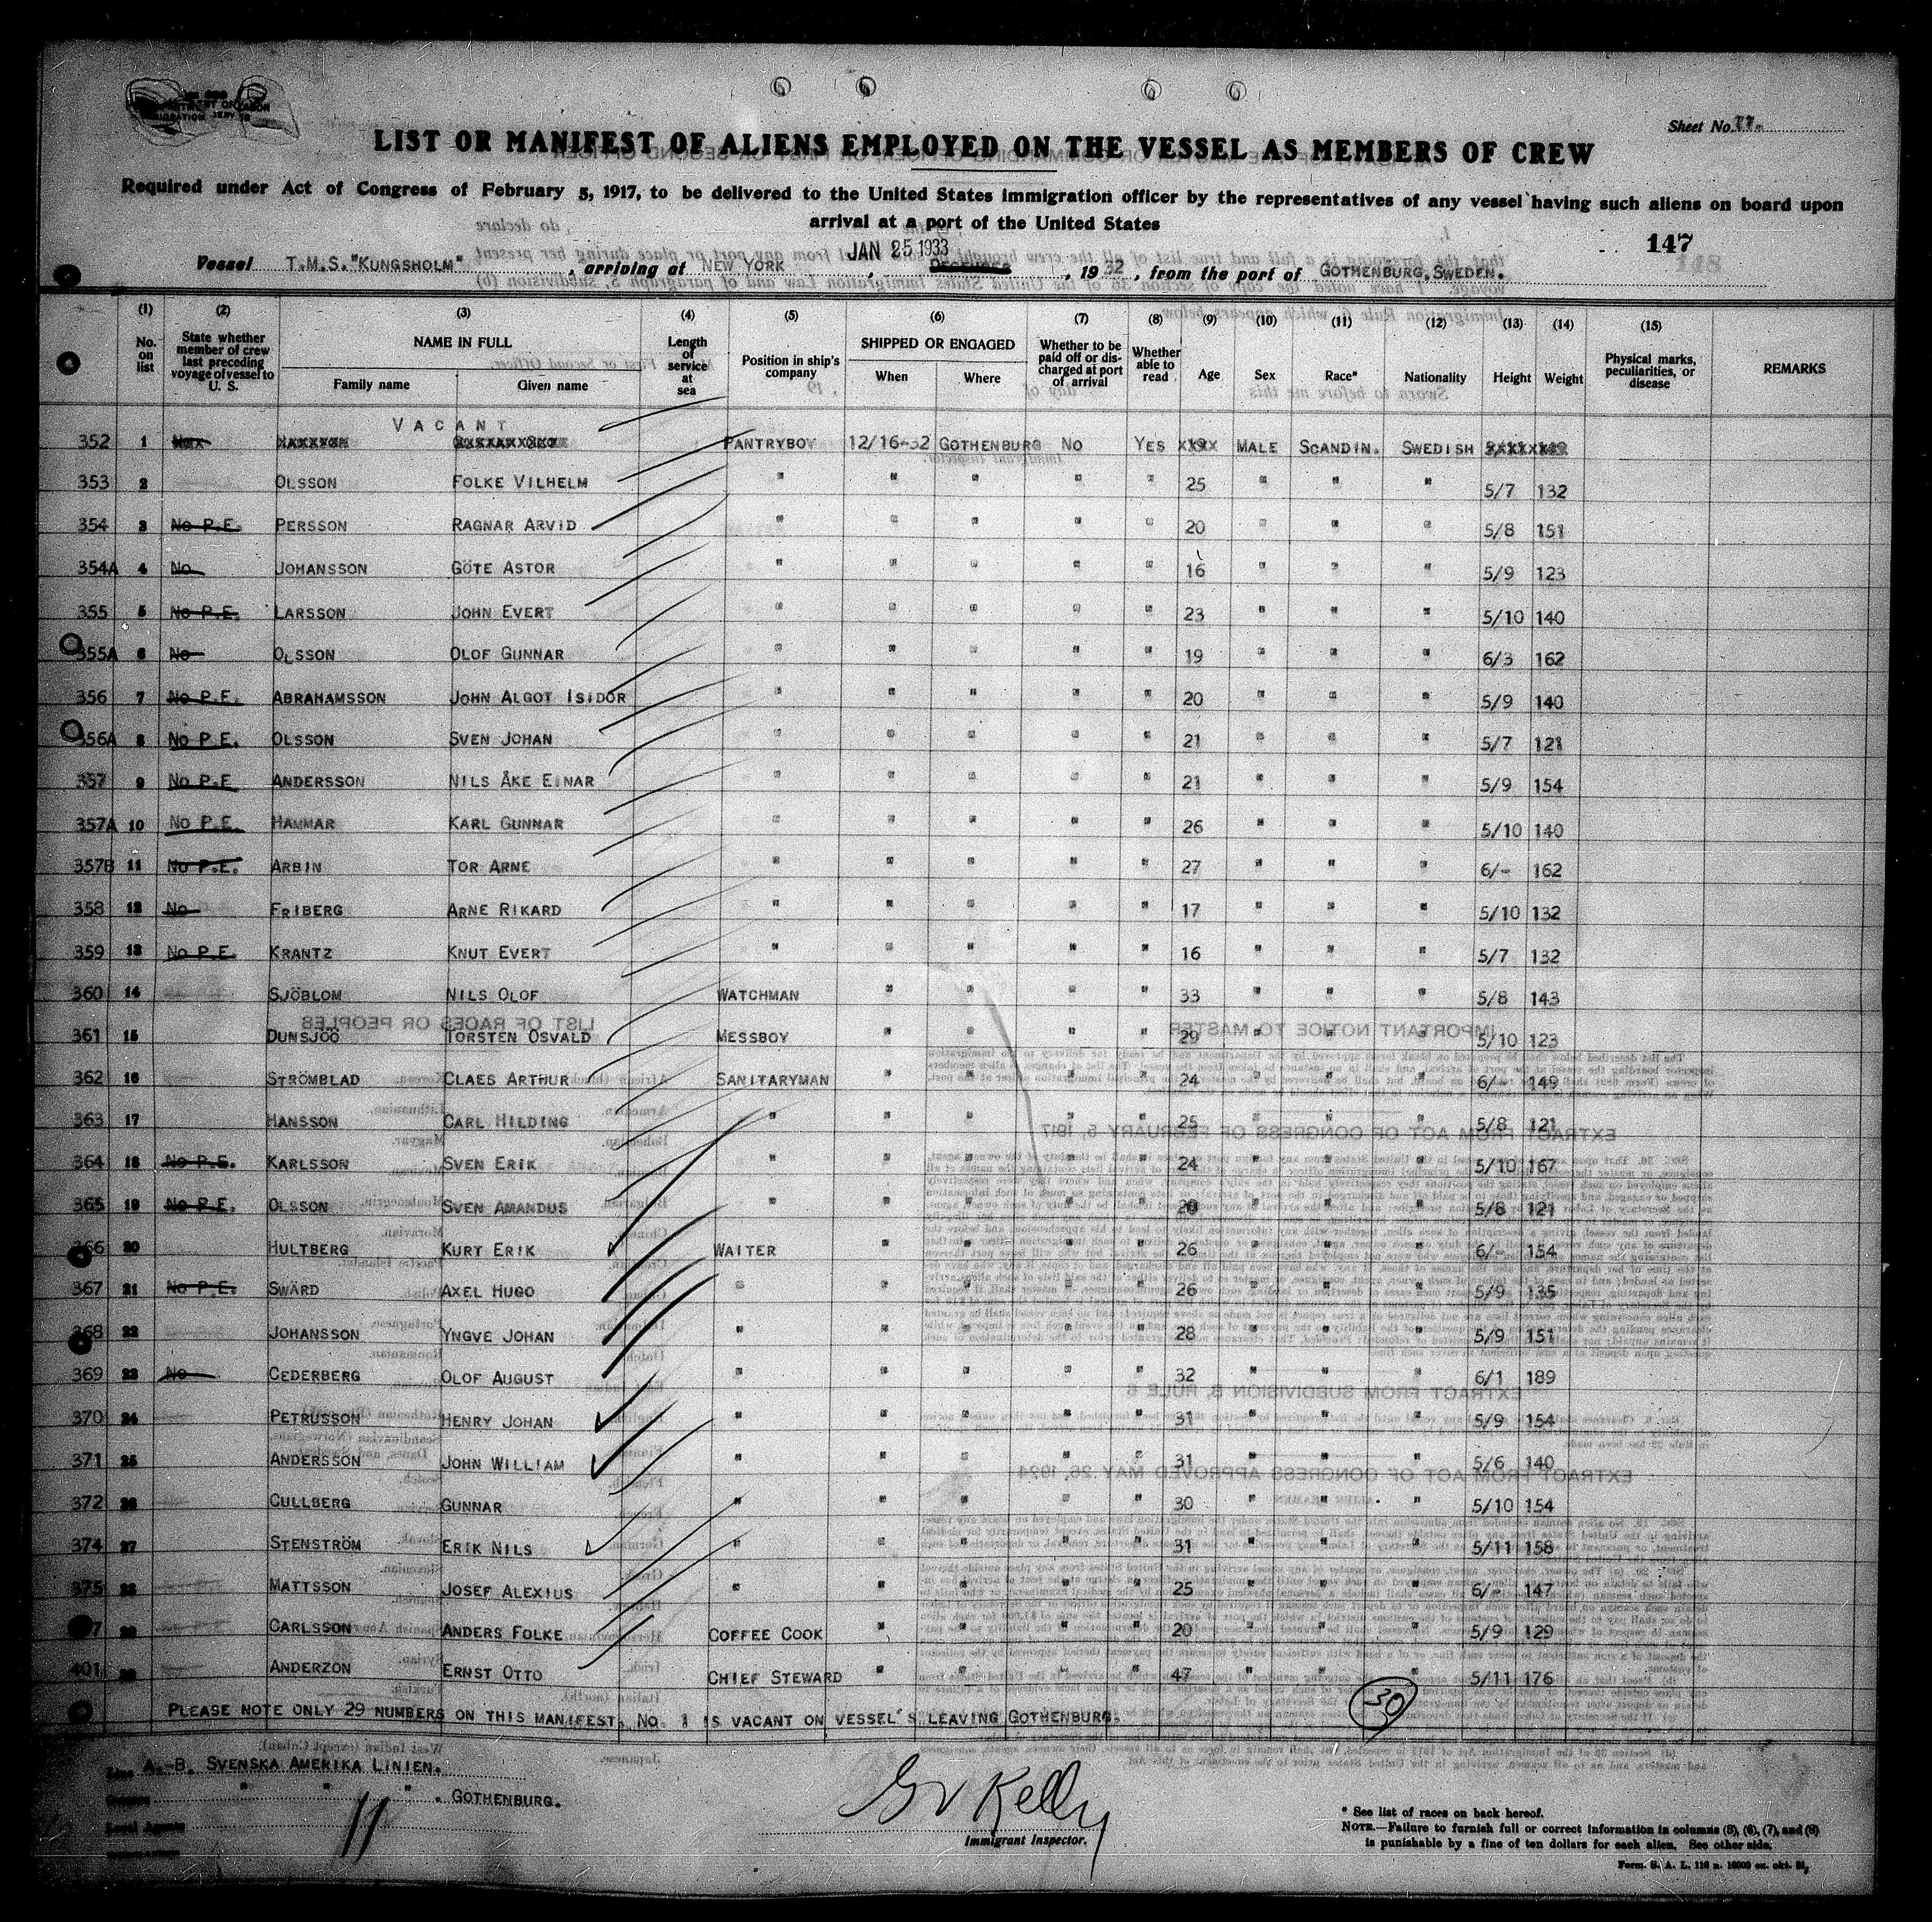 Sheet No.
LIST OR MANIFEST OF ALIENS EMPLOYED ON THE VESSEL AS MEMBERS OF CREW
Required under Act of Congress of February 5, 1917, to be delivered to the United States immigration officer by the representatives of any vessel having such aliens on board upon
arrival at a port of the United States
JAN 25 1933
147
Vessel T.M.S. "KUNGSHOLM", arriving at NEW YORK, , 1932, from the port of GOTHENBURG, SWEDEN.
(1) (2) (3) (4) (5) (6) (7) (8) (9) (10) (11) (12) (13) (14) (15)
No. on list State whether member of crew last preceding voyage of vessel to U. S. NAME IN FULL Family name Given name Length of service at sea Position in ship's company SHIPPED OR ENGAGED When Where Whether to be paid off or discharged at port of arrival Whether able to read Age Sex Race* Nationality Height Weight Physical marks, peculiarities, or disease REMARKS
VACANT
352 1 PANTRYBOY 12/16-32 GOTHENBURG NO YES MALE SCANDIN. SWEDISH
353 2 OLSSON FOLKE VILHELM " " " " " 25 " " " 5/7 132
354 3 No P.E. PERSSON RAGNAR ARVID " " " " " 20 " " " 5/8 151
354A 4 No JOHANSSON GÖTE ASTOR " " " " " 16 " " " 5/9 123
355 5 No P.E. LARSSON JOHN EVERT " " " " " 23 " " " 5/10 140
355A 6 No OLSSON OLOF GUNNAR " " " " " 19 " " " 6/3 162
356 7 No P.E. ABRAHAMSSON JOHN ALGOT ISIDOR " " " " " 20 " " " 5/9 140
356A 8 No P.E. OLSSON SVEN JOHAN " " " " " 21 " " " 5/7 121
357 9 No P.E ANDERSSON NILS ÅKE EINAR " " " " " 21 " " " 5/9 154
357A 10 No P.E. HAMMAR KARL GUNNAR " " " " " 26 " " " 5/10 140
357B 11 No P.E. ARBIN TOR ARNE " " " " " 27 " " " 6/- 162
358 12 No FRIBERG ARNE RIKARD " " " " " 17 " " " 5/10 132
359 13 No P.E. KRANTZ KNUT EVERT " " " " " 16 " " " 5/7 132
360 14 SJÖBLOM NILS OLOF WATCHMAN " " " " 33 " " " 5/8 143
361 15 DUNSJÖÖ TORSTEN OSVALD MESSBOY " " " " 29 " " " 5/10 123
362 16 STRÖMBLAD CLAES ARTHUR SANITARYMAN " " " " 24 " " " 6/- 149
363 17 HANSSON CARL HILDING " " " " " 25 " " " 5/8 121
364 18 No P.E. KARLSSON SVEN ERIK " " " " " 24 " " " 5/10 167
365 19 No P.E. OLSSON SVEN AMANDUS " " " " " 20 " " " 5/8 121
366 20 HULTBERG KURT ERIK WAITER " " " " 26 " " " 6/- 154
367 21 No P.E. SWÄRD AXEL HUGO " " " " " 26 " " " 5/9 135
368 22 JOHANSSON YNGVE JOHAN " " " " " 28 " " " 5/9 151
369 23 No CEDERBERG OLOF AUGUST " " " " " 32 " " " 6/1 189
370 24 PETRUSSON HENRY JOHAN " " " " " 31 " " " 5/9 154
371 25 ANDERSSON JOHN WILLIAM " " " " " 31 " " " 5/6 140
372 26 CULLBERG GUNNAR " " " " " 30 " " " 5/10 154
374 27 STENSTRÖM ERIK NILS " " " " " 31 " " " 5/11 158
375 28 MATTSSON JOSEF ALEXIUS " " " " " 25 " " " 6/- 147
29 CARLSSON ANDERS FOLKE COFFEE COOK " " " " 20 " " " 5/9 129
401 30 ANDERZON ERNST OTTO CHIEF STEWARD " " " " 47 " " " 5/11 176
30
PLEASE NOTE ONLY 29 NUMBERS ON THIS MANIFEST. No. 1 IS VACANT ON VESSEL'S LEAVING GOTHENBURG.
Line A.-B. SVENSKA AMERIKA LINIEN.
Owners " " " . GOTHENBURG.
Local Agents
11
Kelly
Immigrant Inspector.
* See list of races on back hereof.
NOTE.—Failure to furnish full or correct information in columns (3), (6), (7), and (8)
is punishable by a fine of ten dollars for each alien. See other side.
Form. S. A. L. 116